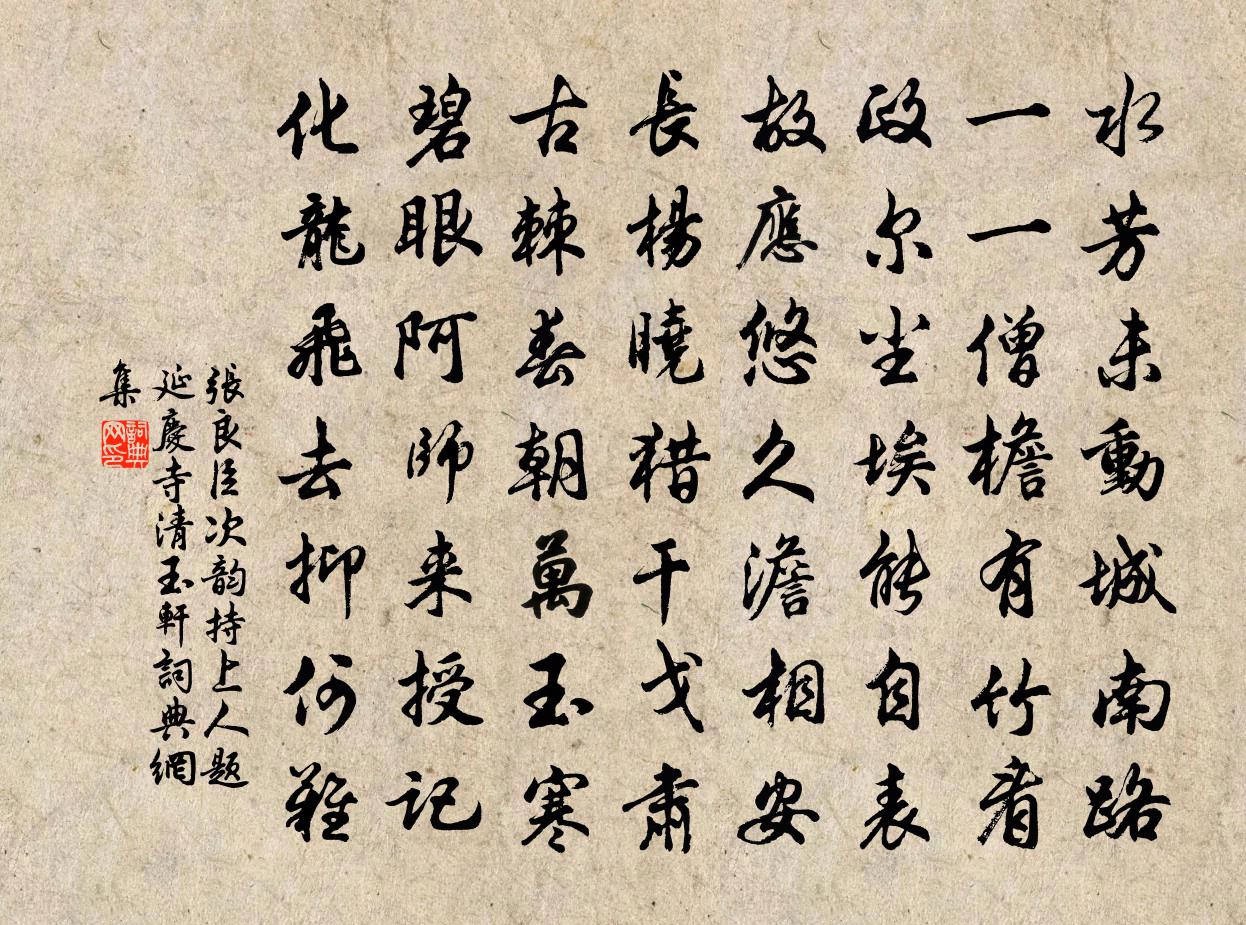 水芳未動城南路
一一僧檐有竹看
政尔坐埃能自表
故應悠久澹相安
長楊曉猎干戈肅
古棘春朝萬玉寒
碧眼阿師来授記
化龍飛去抑何難
張良臣次韵持上人題
延慶寺清玉軒詞典網
集
詞典网印